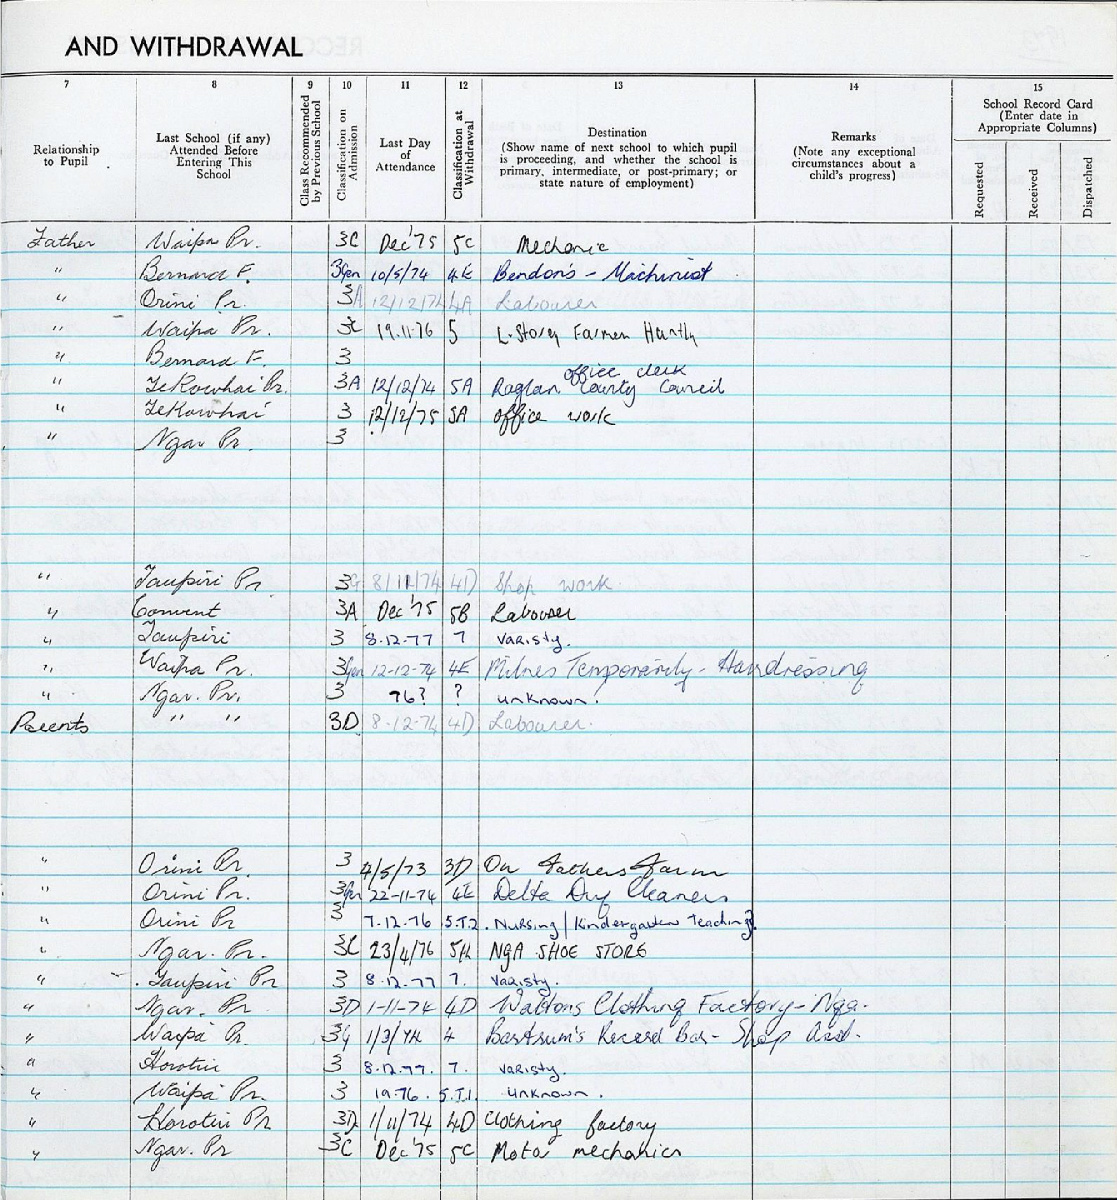 AND WITHDRAWAL
7 8 9 10 11 12 13 14 15
Relationship to Pupil
Last School (if any) Attended Before Entering This School
Class Recommended by Previous School
Classification on Admission
Last Day of Attendance
Classification at Withdrawal
Destination (Show name of next school to which pupil is proceeding, and whether the school is primary, intermediate, or post-primary; or state nature of employment)
Remarks (Note any exceptional circumstances about a child's progress)
School Record Card (Enter date in Appropriate Columns)
Requested Received Dispatched
Father Waipa Pr. 3C Dec '75 5C Mechanic
" Bernard F. 3Gen 10/5/74 4E Bendon's - Machinist
" Orini Pr. 3A 12/12/74 4A Labourer
" Waipa Pr. 3C 19.11.76 5 L. Storey Farmer Huntly
" Bernard F. 3
office clerk
" TeKowhai Pr. 3A 12/12/74 5A Raglan County Council
" TeKowhai 3 12/12/75 5A office work
" Ngar Pr. 3
" Taupiri Pr 3G 8/11/74 4D Shop work
" Convent 3A Dec '75 5B Labourer
" Taupiri 3 8.12.77 7 Varisty.
" Waipa Pr. 3Gen 12-12-74 4E Milnes Temporarily - Hairdressing
" Ngar. Pr. 3 76? ? unknown.
Parents " " 3D 8-12-74 4D Labourer.
" Orini Pr. 3 4/5/73 3D On Fathers farm
" Orini Pr. 3Gen 22-11-74 4E Delta Dry Cleaners
" Orini Pr 3 7.12.76 5.T.2. Nursing/Kindergarten Teaching?
" Ngar. Pr. 3C 23/4/76 NGA SHOE STORE
" Taupiri Pr 3 8.12.77 7. Varisty.
" Ngar. Pr 3D 1-11-74 4D Waltons Clothing Factory - Nga.
" Waipa Pr. 1/3/74 4 Bartrum's Record Bar - Shop Asst.
" Horotiu 3 8.12.77. 7. Varisty.
" Waipa Pr. 3 1976. 5.T.1. unknown.
" Horotiu Pr 3D 1/11/74 4D Clothing factory
" Ngar. Pr 3C Dec '75 5C Motor mechanics